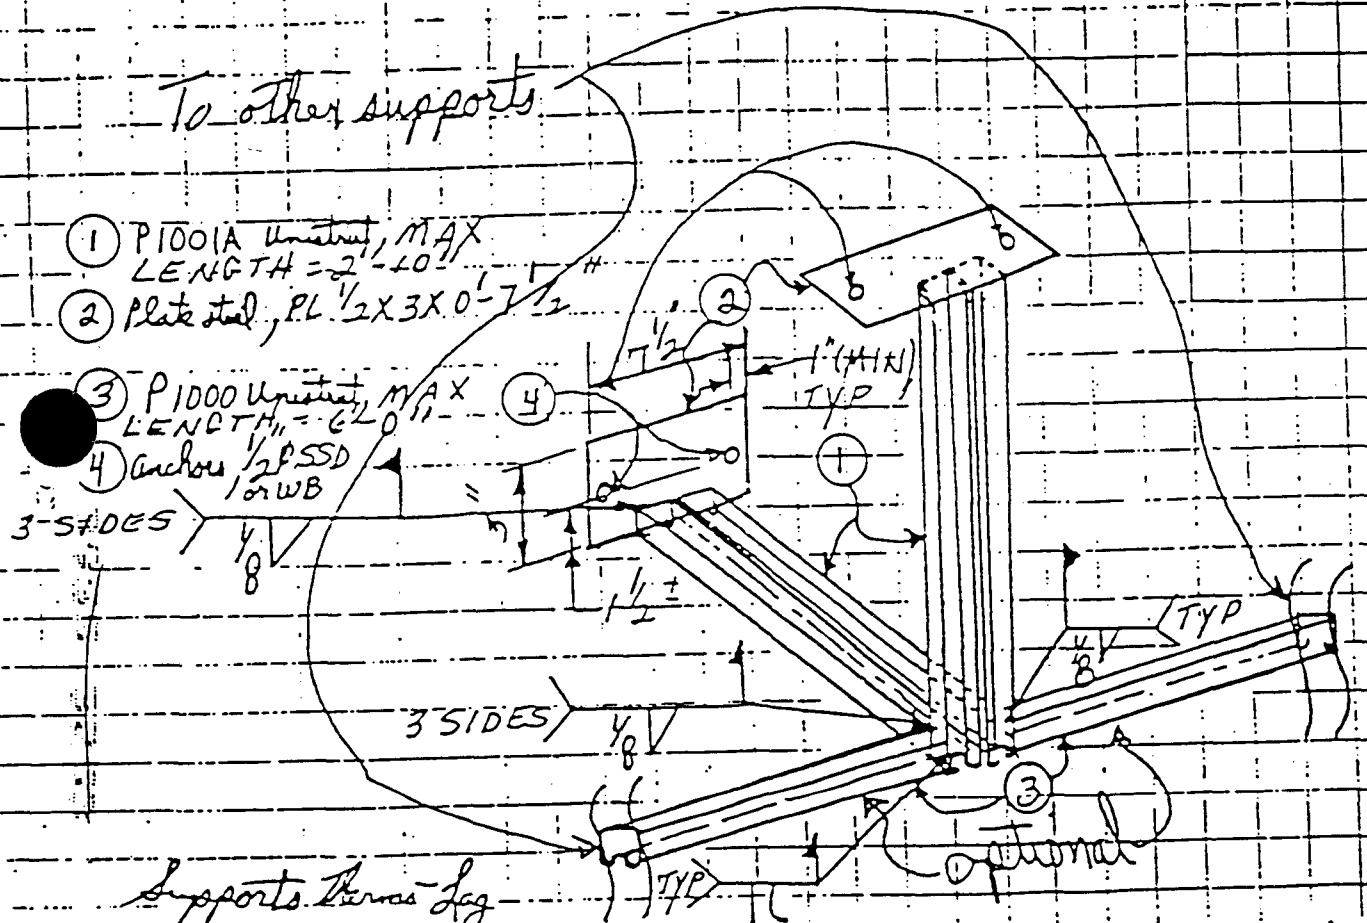 To other supports
① P1001A Unistrut, MAX
LENGTH = 2'-10"
② Plate steel, PL 1/2 X 3 X 0'-7 1/2"
③ P1000 Unistrut, MAX
LENGTH = 6'-0"
④ anchors 1/2
or WB
②
7 1/2"
1" (MIN)
TYP
④
①
3-SIDES
1/8
1 1/2 ±
TYP
1/8
3 SIDES
1/8
③
optional
TYP
Supports Thermo-Lag